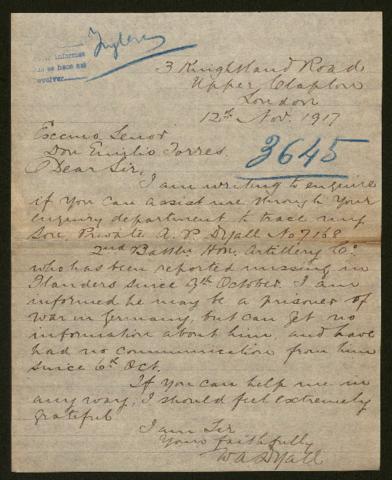 Ingles
informe
se hace ask
3 Knightland Road
Upper Clapton
London
12th Nov. 1917
Excmo. Senor
Don Emilio Torres
3645
Dear Sir,
I am writing to enquire
if you can assist me through your
enquiry department to trace my
Son, Private A. P. Dyall No 7168
2nd Battln Hon. Artillery Co.
who has been reported missing in
Flanders since 9th October. I am
informed he may be a prisoner of
war in Germany, but can get no
information about him, and have
had no communication from him
since 6th Oct.
If you can help me in
any way, I should feel extremely
grateful
I am Sir
Yours faithfully
W A Dyall